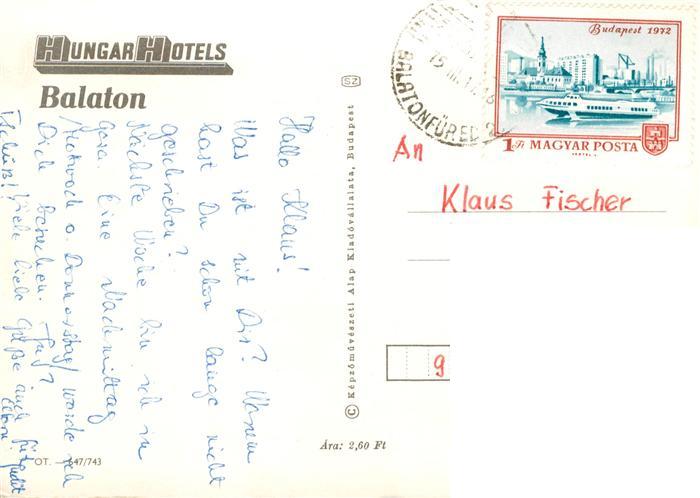 HUNGARHOTELS
Balaton
Hallo Klaus!
Was ist mit Dir? Warum
hast Du schon lange nicht
geschrieben?
Nächste Woche bin ich in
Gera. Eine Nachmittag
Mittwoch o. Donnerstag/ werde ich
Dich besuchen. Ja?
Tschüß! Viele liebe Grüße auch für
Eltern!
OT. — 647/743
SZ
© Képzőművészeti Alap Kiadóvállalata, Budapest
Ára: 2,60 Ft
BALATONFÜRED
Budapest 1972
1 Ft MAGYAR POSTA
An
Klaus Fischer
9